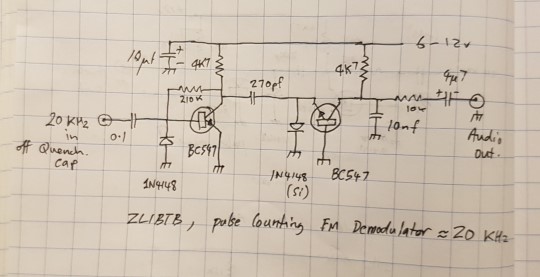 6-12v
10µf
+
4K7
4K7
4µ7
+
270pf
210K
10K
20 KHz
in
off Quench.
Cap
0.1
BC547
10nf
Audio
out.
1N4148
1N4148
(Si)
BC547
ZL1BTB, pulse Counting FM Demodulator ≈ 20 KHz